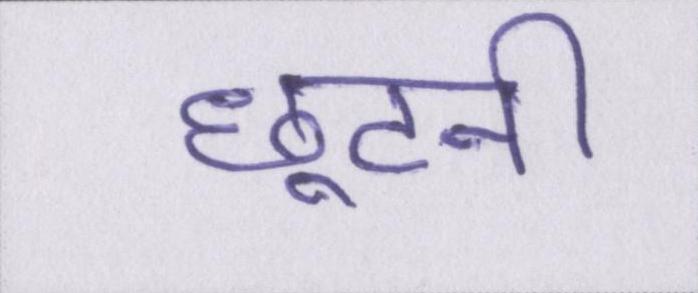 छूटनी